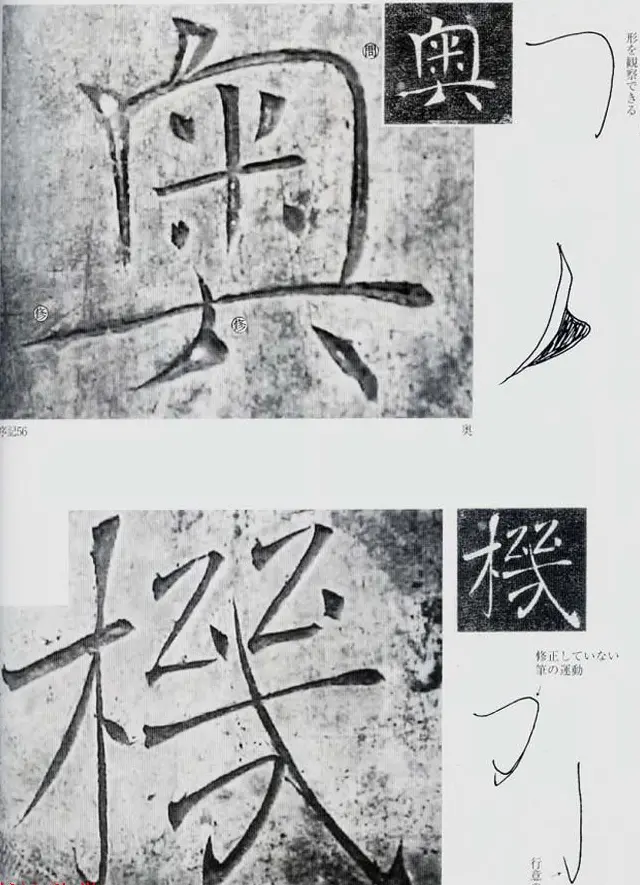 奥
問
修
修
奥
形を観察できる
序記56
奥
機
機
修正していない
筆の運動
行意